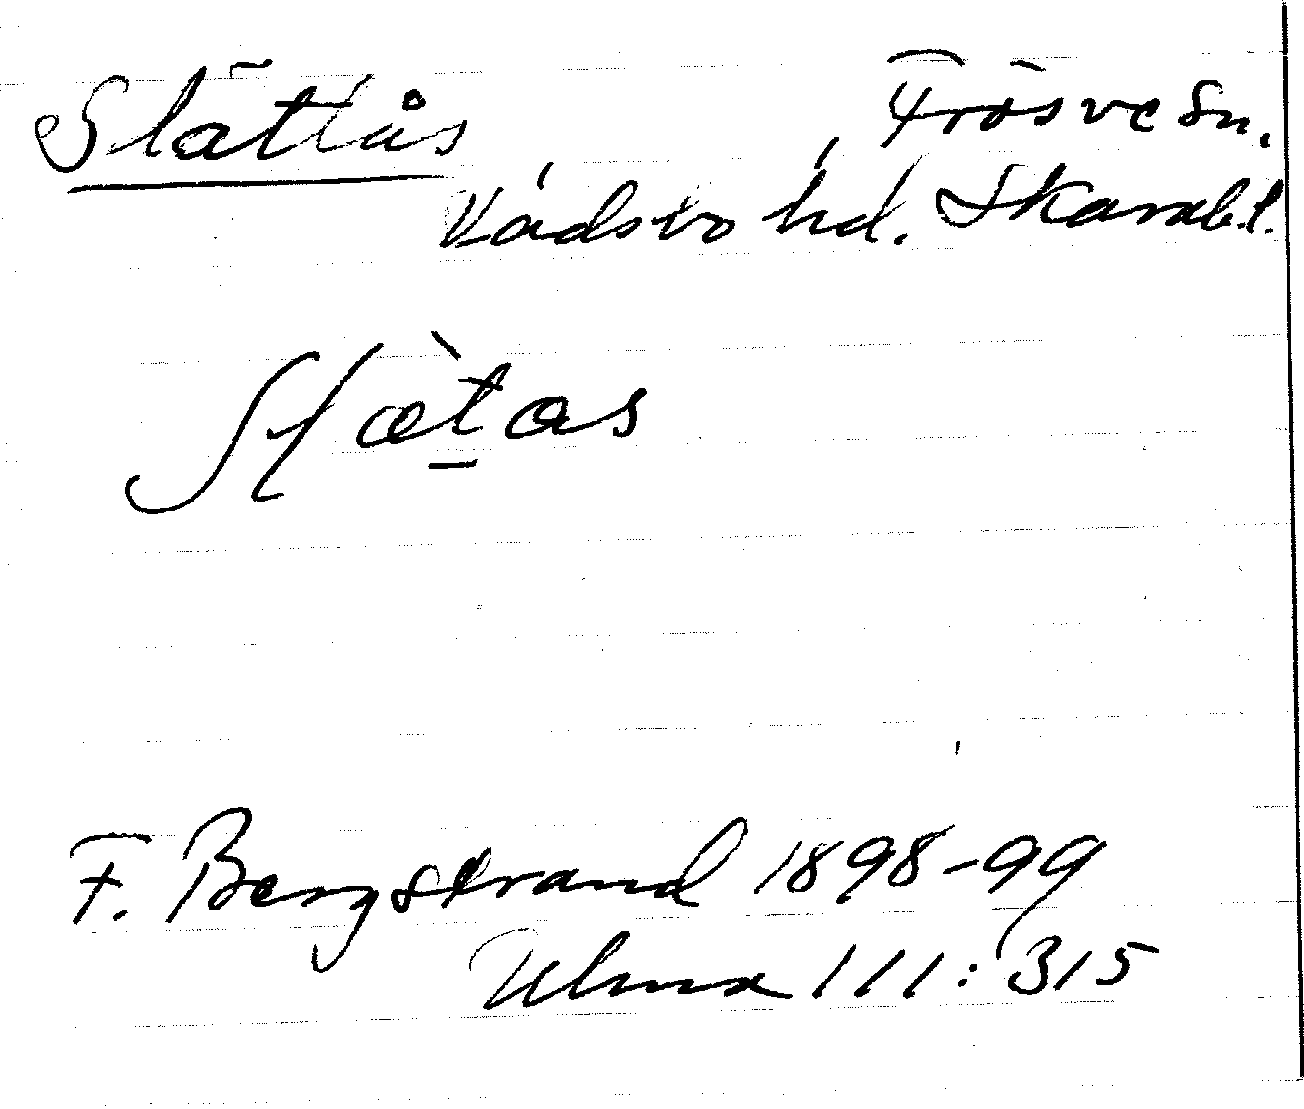 Slättås Frösve Sn.
Vadsbo hd. Skarabl.
Slætas
F. Bergstrand 1898-99
Ulma 111:315